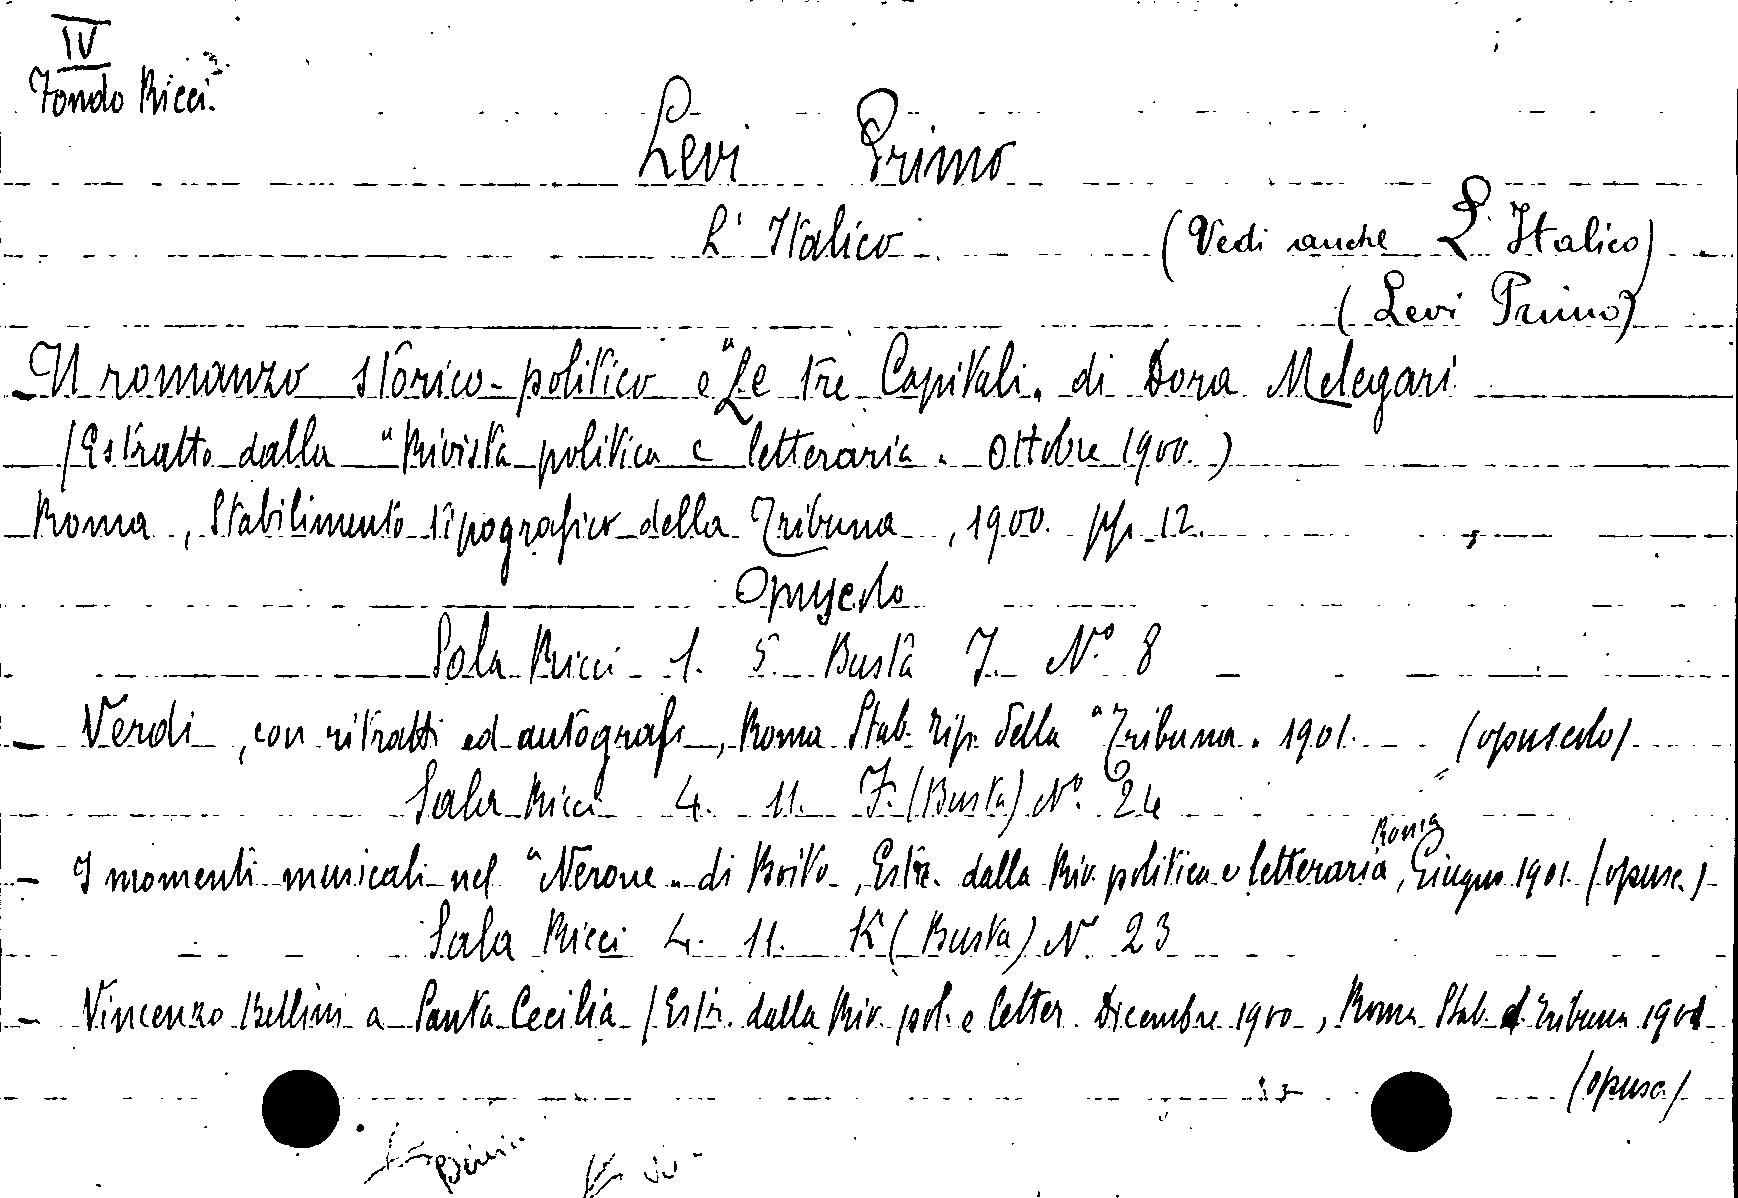 IV
Fondo Ricci.
Levi Primo
L' Italico
(Vedi anche L'Italico)
(Levi Primo)
- Il romanzo storico-politico e "Le tre Capitali" di Dora Melegari
(Estratto dalla "Rivista politica e letteraria" Ottobre 1900.)
Roma, Stabilimento tipografico della Tribuna, 1900. pp. 12.
Opuscolo
Sala Ricci 1. 5. Busta J. N.° 8
- Verdi, con ritratti ed autografi, Roma Stab. Tip. della "Tribuna" 1901. (opuscolo)
Sala Ricci 4. 11. J. (Busta) N.° 24
Roma
- I momenti musicali nel "Nerone" di Boito, Estr. dalla Riv. politica e letteraria, Giugno 1901. (opusc.)
Sala Ricci 4. 11. K (Busta) N° 23
- Vincenzo Bellini a Santa Cecilia (Estr. dalla Riv. pol. e letter. Dicembre 1900, Roma Stab. d. Tribuna 1901
(opusc.)